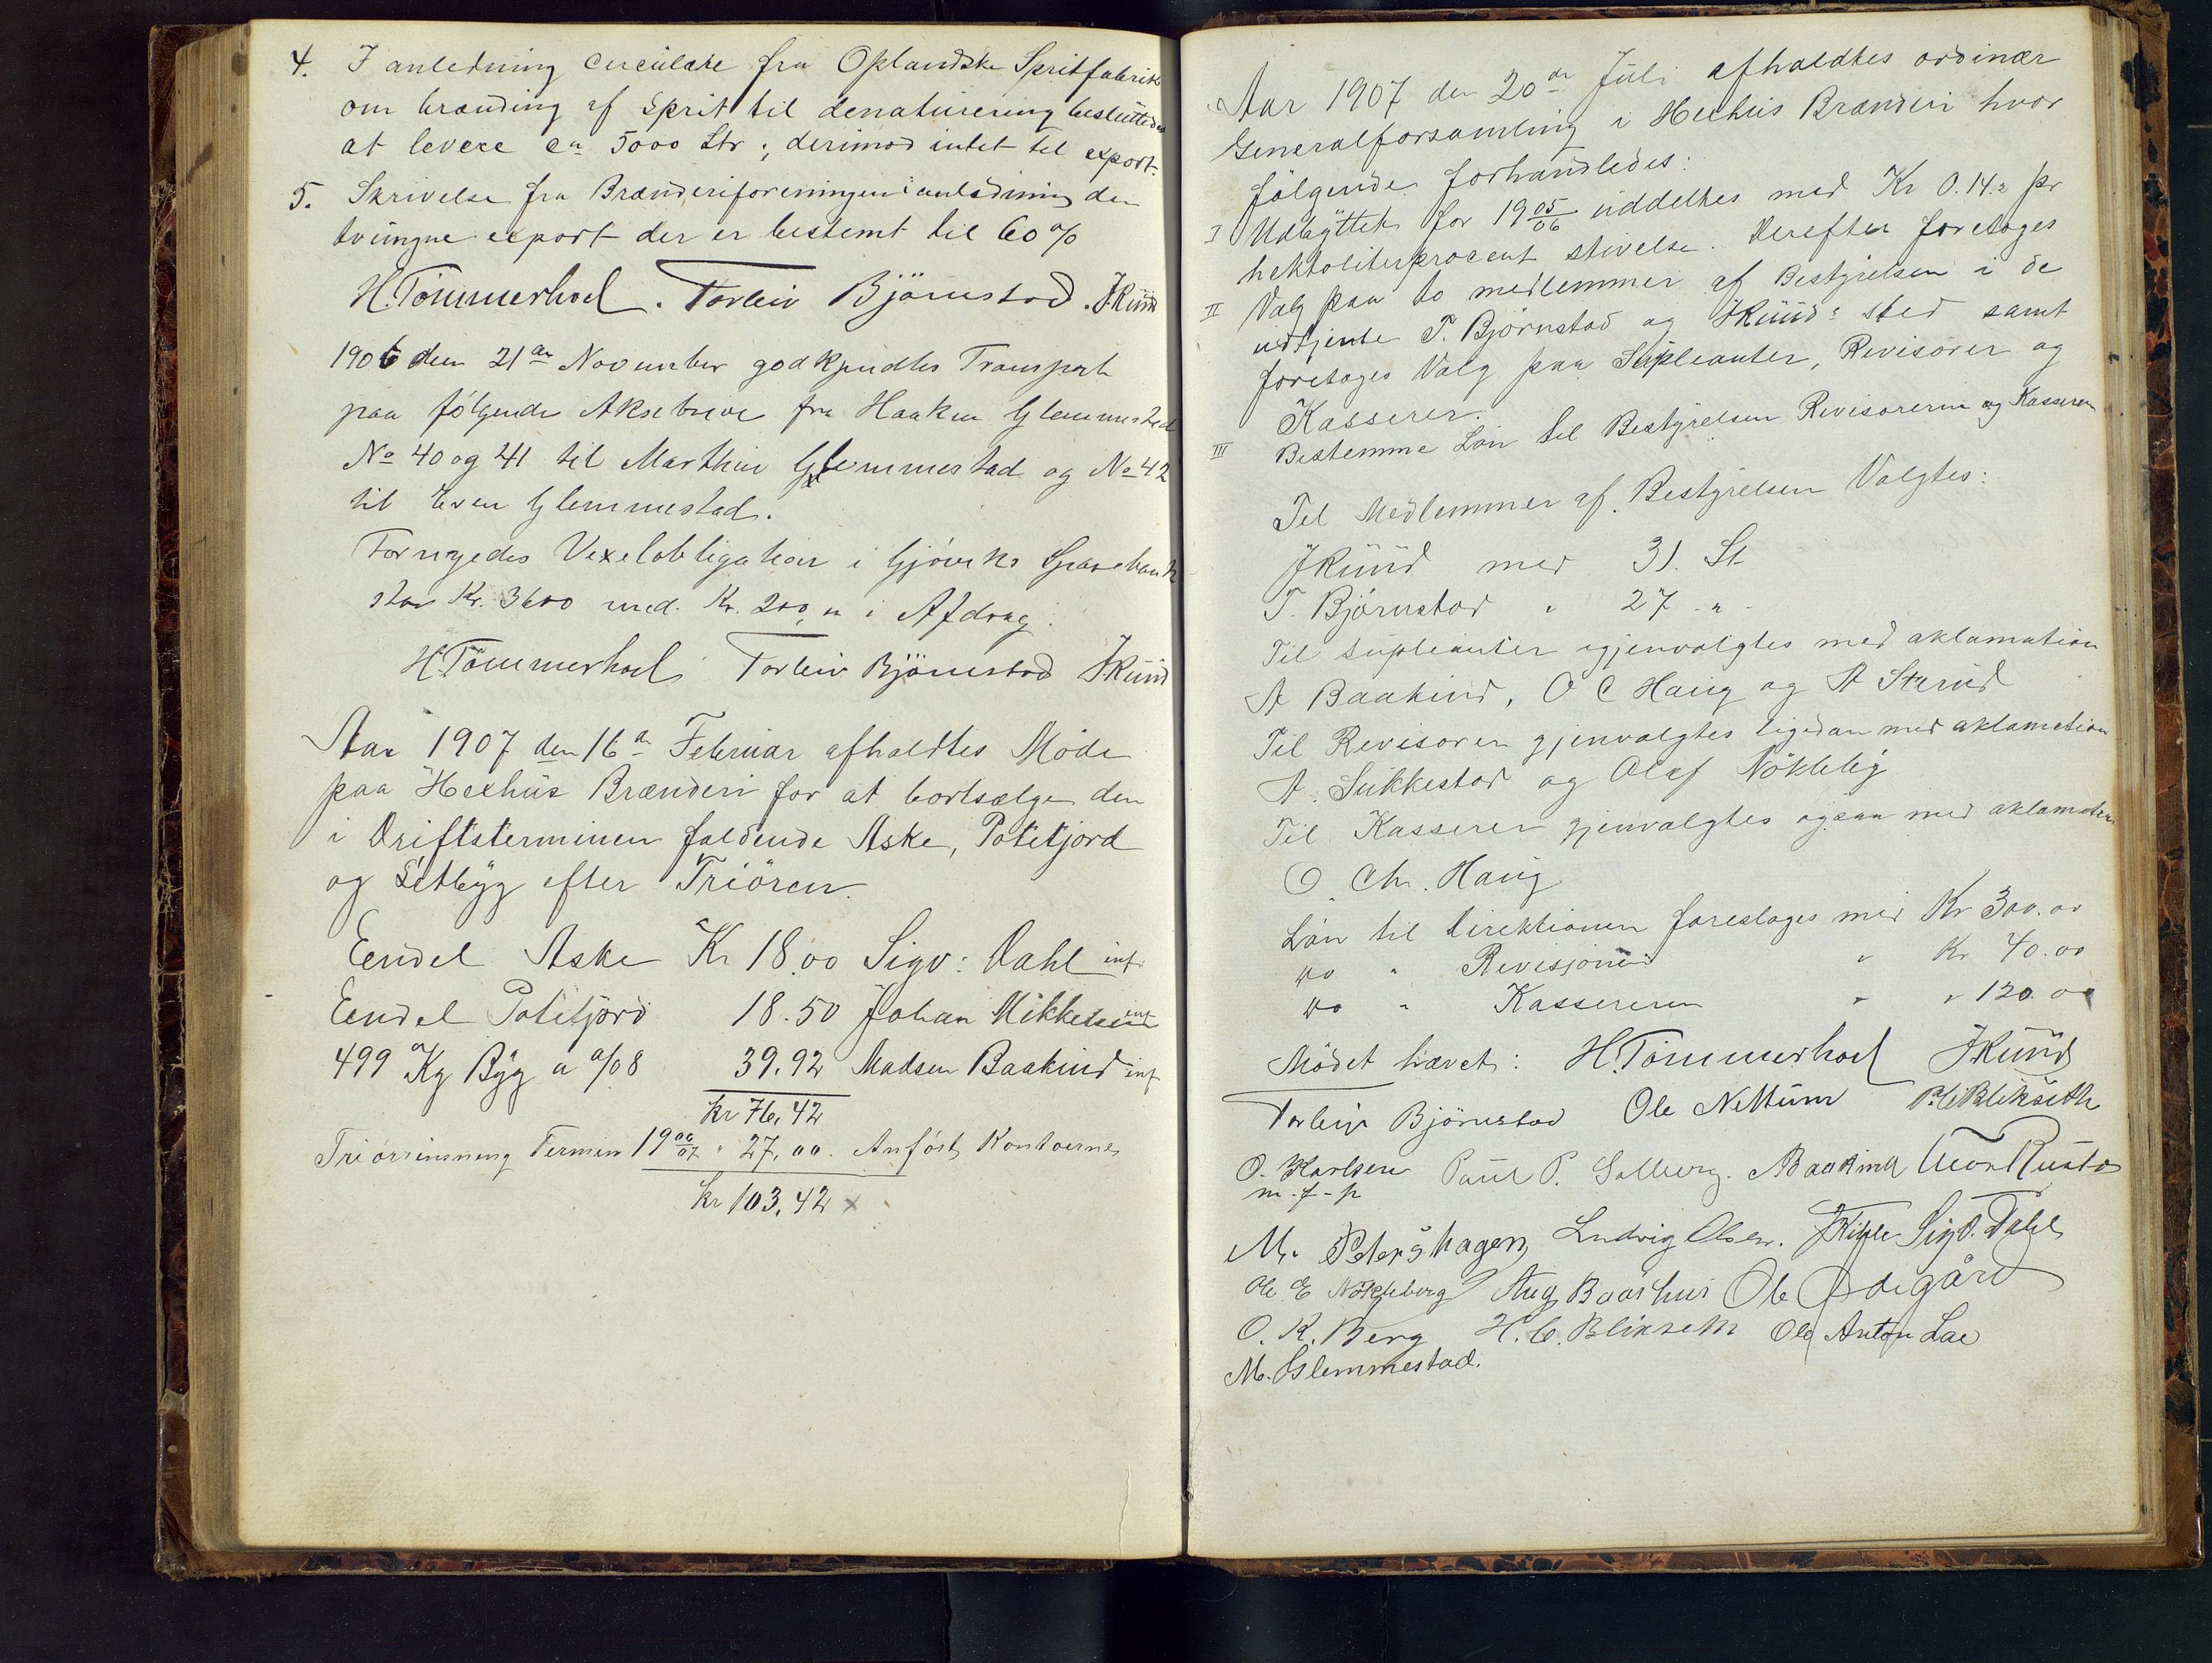 4. I anledning Circulære fra Oplandske Spritfabrik
om brænding af Sprit til denaturering besluttedes
at levere ca 5000 Ltr; derimod intet til export.
5. Skrivelse fra Brænderiforeningen i anledning den
tvungne export der er bestemt til 60 %
H. Tömmerhoel. Torleiv Björnstad. J Ruud
1906 den 21de November godkjendtes Transport
paa følgende Aksebreve fra Haaken Glemmestad
No 40 og 41 til Marthin Glemmestad og No 42
til Even Glemmestad.
Fornyedes Vexelobligation i Gjøviks Sparebank
stor Kr. 3600 med Kr. 200,00 i Afdrag.
H. Tömmerhoel Torleiv Björnstad J Ruud
Aar 1907 den 16de Februar afholdtes Möde
paa Hexhus Brænderi for at bortsælge den
i Driftsterminen faldende Aske, Potetjord
og Letbyg efter Triören.
Eendel Aske Kr 18.00 Sigv: Dahl int
Eendel Potetjord 18.50 Johan Mikkelsen int
499 Kg Byg a 0/08 39.92 Madsen Baakind int
Kr 76,42
Triörrensning Termin 19 06/07 " 27,00. Anført Kontoerne
Kr 103,42 x
Aar 1907 den 20de Juli afholdtes ordinær
Generalforsamling i Hexhus Brænderi hvor
følgende forhandledes:
I Udbyttet for 19 05/06 uddeltes med Kr 0.14.2 pr
hektoliterprocent stivelse. Derefter foretoges
II Valg paa to medlemmer af Bestyrelsen i de
udtjente T. Björnstad og J Ruuds sted samt
foretoges Valg paa Supleanter, Revisorer og
Kasserer.
III Bestemme Løn til Bestyrelsen Revisorerne og Kasseren
Til Medlemmer af Bestyrelsen Valgtes:
J Ruud med 31. St
T. Björnstad " 27 - " -
Til supleanter igjenvalgtes med aklamation
A Baakind, O C Haug og A Strud
Til Revisorer gjenvalgtes ligedan med aklamation
A. Sukkestad og Olaf Nökleby
Til Kasserer gjenvalgtes ogsaa med aklamation
O. Chr. Haug
Løn til Direktionen foreslages med Kr 300.00
do " Revisjonen " Kr 40.00
do " Kassereren " " 120.00
Mödet hævet: H. Tömmerhoel J Ruud
Torleiv Björnstad Ole Nettum P. C. Blikseth
O. Karlsen Paul P. Solberg. A Baakind Thor Rusta
m-f-p
M. Petershagen Ludvig Olsen. Sigv. Dahl
Ole E Nökleberg Aug Baashus Ole Ødegård
O. K. Berg H. C. Blikseth Ole Anton Lae
M. Glemmestad.